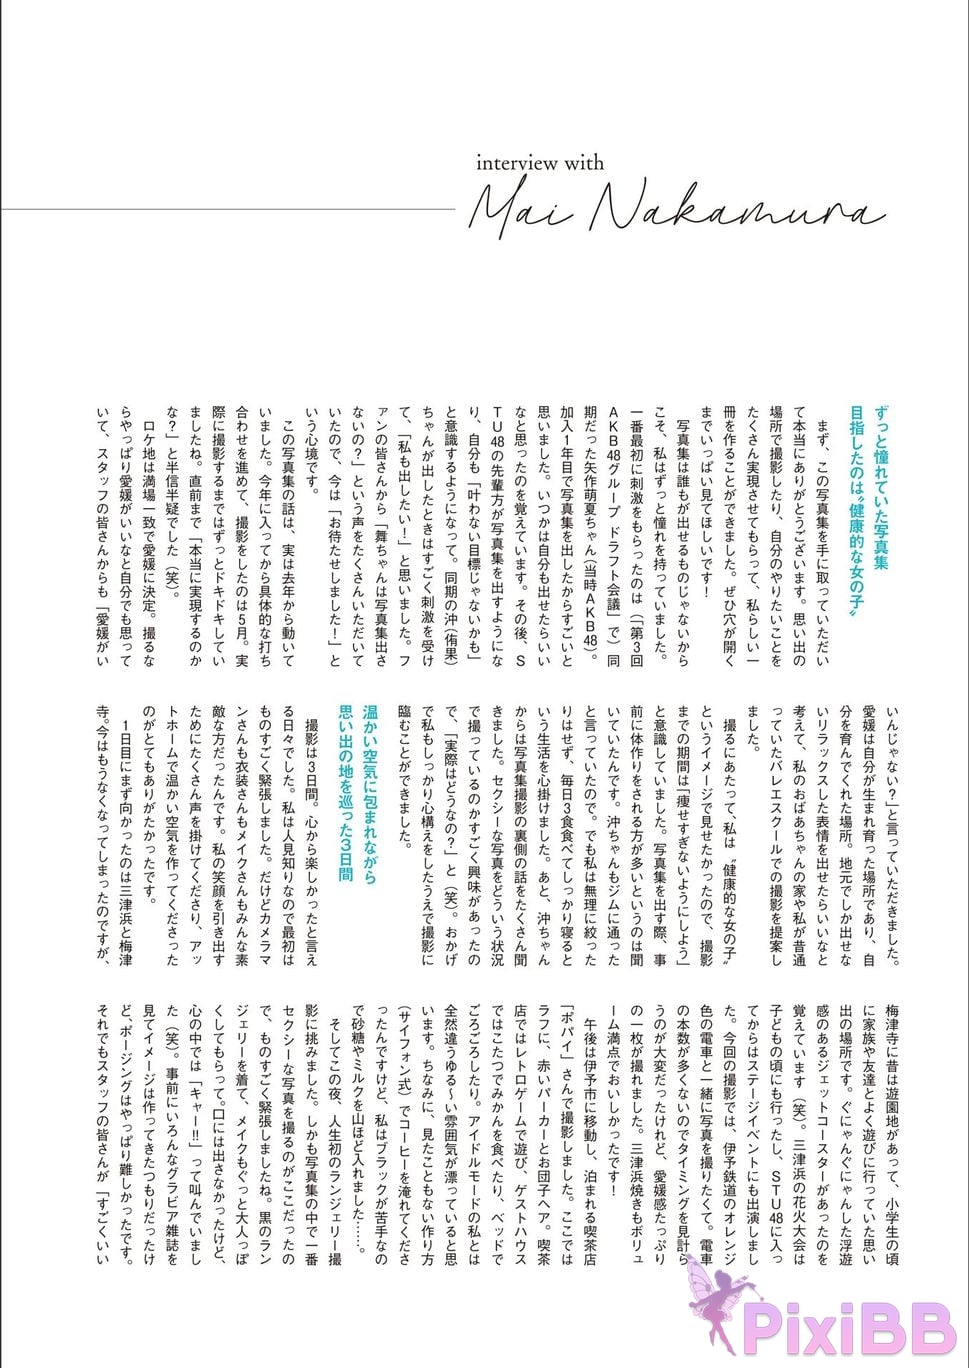 interview with
Mai Nakamura
ずっと憧れていた写真集
目指したのは“健康的な女の子”
まず、この写真集を手に取っていただい
て本当にありがとうございます。思い出の
場所で撮影したり、自分のやりたいことを
たくさん実現させてもらって、私らしい一
冊を作ることができました。ぜひ穴が開く
までいっぱい見てほしいです!
写真集は誰もが出せるものじゃないから
こそ、私はずっと憧れを持っていました。
一番最初に刺激をもらったのは(「第3回
AKB48グループ ドラフト会議」で)同
期だった矢作萌夏ちゃん(当時AKB48)。
加入1年目で写真集を出したからすごいと
思いました。いつかは自分も出せたらいい
なと思ったのを覚えています。その後、S
TU48の先輩方が写真集を出すようにな
り、自分も「叶わない目標じゃないかも」
と意識するようになって。同期の沖(侑果)
ちゃんが出したときはすごく刺激を受け
て、「私も出したい!」と思いました。フ
ァンの皆さんから「舞ちゃんは写真集出さ
ないの?」という声をたくさんいただいて
いたので、今は「お待たせしました!」と
いう心境です。
この写真集の話は、実は去年から動いて
いました。今年に入ってから具体的な打ち
合わせを進めて、撮影をしたのは5月。実
際に撮影するまではずっとドキドキしてい
ましたね。直前まで「本当に実現するのか
な?」と半信半疑でした(笑)。
ロケ地は満場一致で愛媛に決定。撮るな
らやっぱり愛媛がいいなと自分でも思って
いて、スタッフの皆さんからも「愛媛がい
いんじゃない?」と言っていただきました。
愛媛は自分が生まれ育った場所であり、自
分を育んでくれた場所。地元でしか出せな
いリラックスした表情を出せたらいいなと
考えて、私のおばあちゃんの家や私が昔通
っていたバレエスクールでの撮影を提案し
ました。
撮るにあたって、私は“健康的な女の子”
というイメージで見せたかったので、撮影
までの期間は「痩せすぎないようにしよう」
と意識していました。写真集を出す際、事
前に体作りをされる方が多いというのは聞
いていたんです。沖ちゃんもジムに通った
と言っていたので。でも私は無理に絞った
りはせず、毎日3食食べてしっかり寝ると
いう生活を心掛けました。あと、沖ちゃん
からは写真集撮影の裏側の話をたくさん聞
きました。セクシーな写真をどういう状況
で撮っているのかすごく興味があったの
で、「実際はどうなの?」と(笑)。おかげ
で私もしっかり心構えをしたうえで撮影に
臨むことができました。
温かい空気に包まれながら
思い出の地を巡った3日間
撮影は3日間。心から楽しかったと言え
る日々でした。私は人見知りなので最初は
ものすごく緊張しました。だけどカメラマ
ンさんも衣装さんもメイクさんもみんな素
敵な方だったんです。私の笑顔を引き出す
ためにたくさん声を掛けてくださり、アッ
トホームで温かい空気を作ってくださった
のがとてもありがたかったです。
1日目にまず向かったのは三津浜と梅津
寺。今はもうなくなってしまったのですが、
梅津寺に昔は遊園地があって、小学生の頃
に家族や友達とよく遊びに行っていた思い
出の場所です。ぐにゃんぐにゃんした浮遊
感のあるジェットコースターがあったのを
覚えています(笑)。三津浜の花火大会は
子どもの頃にも行ったし、STU48に入っ
てからはステージイベントにも出演しまし
た。今回の撮影では、伊予鉄道のオレンジ
色の電車と一緒に写真を撮りたくて。電車
の本数が多くないのでタイミングを見計ら
うのが大変だったけれど、愛媛感たっぷり
の一枚が撮れました。三津浜焼きもボリュ
ーム満点でおいしかったです!
午後は伊予市に移動し、泊まれる喫茶店
「ポパイ」さんで撮影しました。ここでは
ラフに、赤いパーカーとお団子ヘア。喫茶
店ではレトロゲームで遊び、ゲストハウス
ではこたつでみかんを食べたり、ベッドで
ごろごろしたり。アイドルモードの私とは
全然違うゆる〜い雰囲気が漂っていると思
います。ちなみに、見たこともない作り方
(サイフォン式)でコーヒーを淹れてくださ
ったんですけど、私はブラックが苦手なの
で砂糖やミルクを山ほど入れました……。
そしてこの夜、人生初のランジェリー撮
影に挑みました。しかも写真集の中で一番
セクシーな写真を撮るのがここだったの
で、ものすごく緊張しましたね。黒のラン
ジェリーを着て、メイクもぐっと大人っぽ
くしてもらって。口には出さなかったけど、
心の中では「キャー!!」って叫んでいまし
た(笑)。事前にいろんなグラビア雑誌を
見てイメージは作ってきたつもりだったけ
ど、ポージングはやっぱり難しかったです。
それでもスタッフの皆さんが「すごくいい
PixiBB